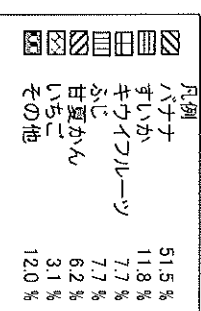 凡例
バナナ 51.5 %
すいか 11.8 %
キウイフルーツ 7.7 %
ふじ 7.7 %
甘夏かん 6.2 %
いちご 3.1 %
その他 12.0 %